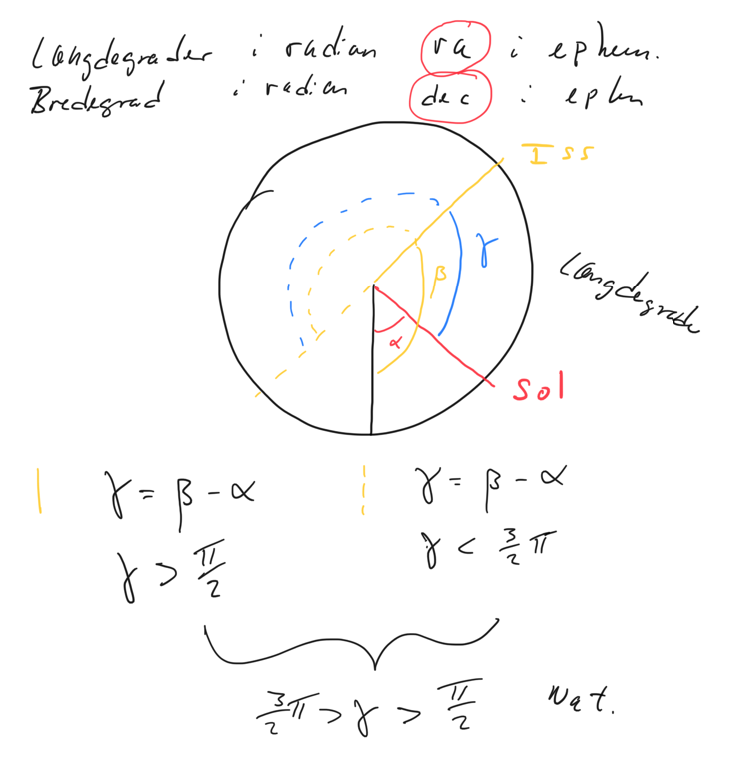 Længdegrader i radian ra i ephem.
Bredegrad i radian dec i ephm
ISS
γ
β
Længdegrade
α
Sol
γ = β - α
γ > π/2
γ = β - α
γ < 3/2 π
3/2 π > γ > π/2 Nat.